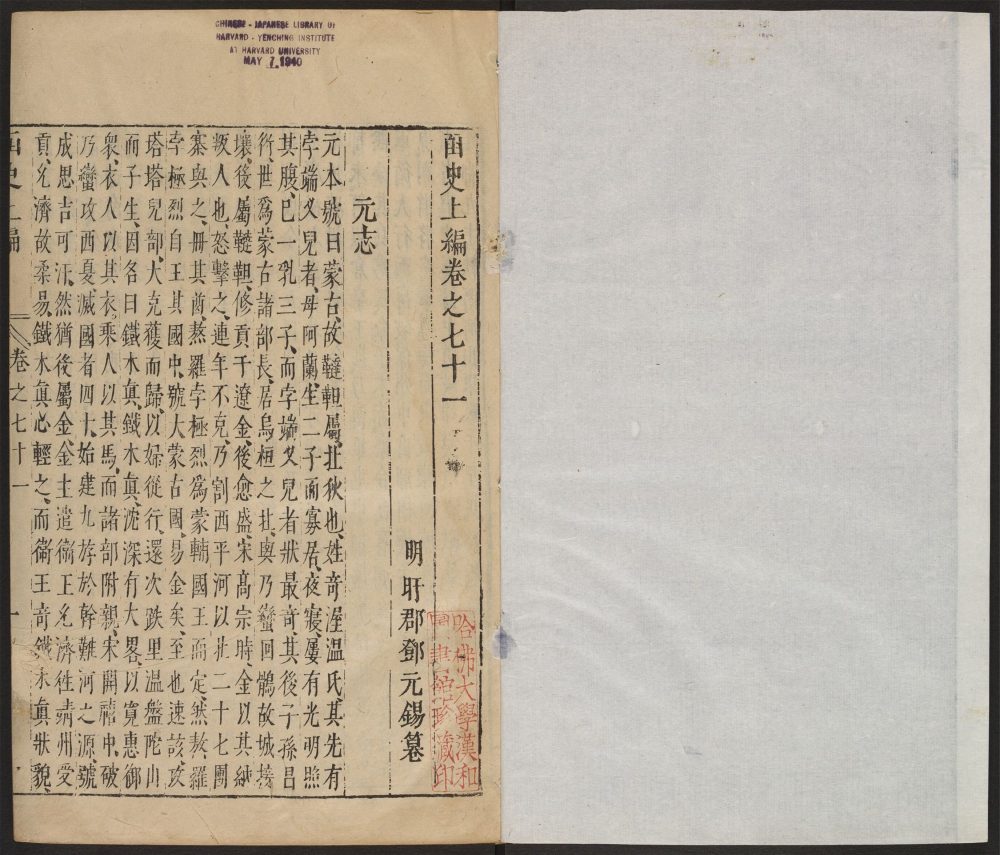 CHINESE - JAPANESE LIBRARY OF
HARVARD - YENCHING INSTITUTE
AT HARVARD UNIVERSITY
MAY 7 1940
函史上編卷之七十一
明盱郡鄧元錫纂
哈佛大學漢和
圖書館珍藏印
元志
元本號曰蒙古故韃靼屬北狄也姓奇渥温氏其先有
孛端义兒者母阿蘭生二子而寡居夜寢屢有光明照
其腹已一乳三子而孛端义兒者狀最奇其後子孫昌
衍世爲蒙古諸部長居烏桓之北與乃蠻囘鶻故城接
壤後屬韃靼修貢于遼金後愈盛宋髙宗時金以其
叛人也怒擊之連年不克乃割西平河以北二十七團
寨與之冊其酋熬羅孛極烈爲蒙輔國王而定然熬羅
孛極烈自王其國中號大蒙古國易金矣至也速該攻
塔塔兒部大克獲而歸以婦從行還次跌里温盤陀山
而子生因名曰鐵木眞鐵木眞沈深有大畧以寛惠御
衆衣人以其衣乘人以其馬而諸部附親宋開禧中破
乃蠻攻西夏滅國者四十始建九斿於幹難河之源號
成思吉可汗然猶後屬金金主遣衞王允濟徃靖州受
貢允濟故柔易鐵木眞心輕之而衞王奇鐵木眞狀貌
函史上編
卷之七十一
一